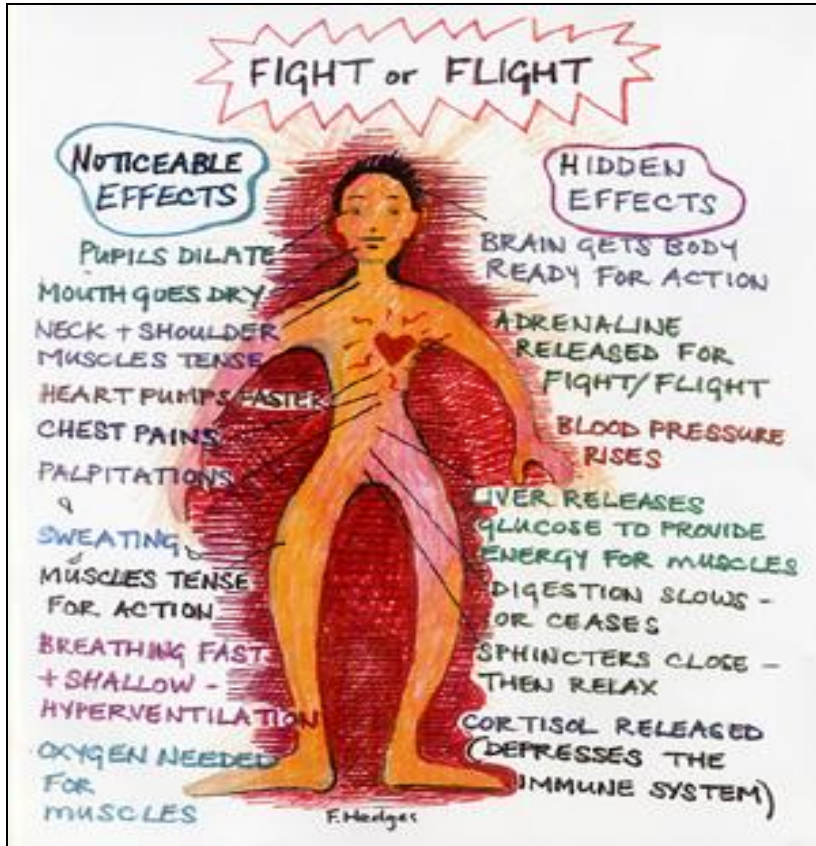 FIGHT or FLIGHT
NOTICEABLE
EFFECTS
PUPILS DILATE
MOUTH GOES DRY
NECK + SHOULDER
MUSCLES TENSE
HEART PUMPS FASTER
CHEST PAINS
PALPITATIONS
SWEATING
MUSCLES TENSE
FOR ACTION
BREATHING FAST
+ SHALLOW -
HYPERVENTILATION
OXYGEN NEEDED
FOR
MUSCLES
HIDDEN
EFFECTS
BRAIN GETS BODY
READY FOR ACTION
ADRENALINE
RELEASED FOR
FIGHT/FLIGHT
BLOOD PRESSURE
RISES
LIVER RELEASES
GLUCOSE TO PROVIDE
ENERGY FOR MUSCLES
DIGESTION SLOWS -
OR CEASES
SPHINCTERS CLOSE -
THEN RELAX
CORTISOL RELEASED
(DEPRESSES THE
IMMUNE SYSTEM)
F. Hedges